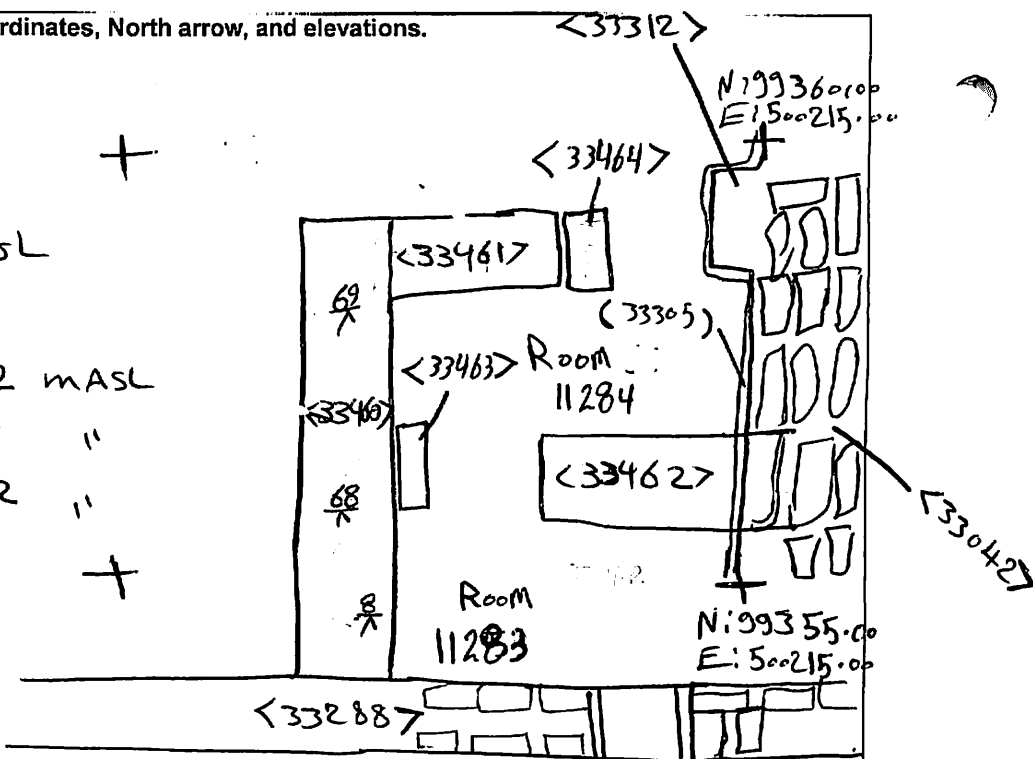 rdinates, North arrow, and elevations.
<33312>
N:99360.00
E:500215.00
<33464>
<33461>
69
(33305)
<33463>
Room
11284
mASL
<33460>
"
<33462>
68
"
<33042>
8
Room
11283
N:99355.00
E:500215.00
<33288>